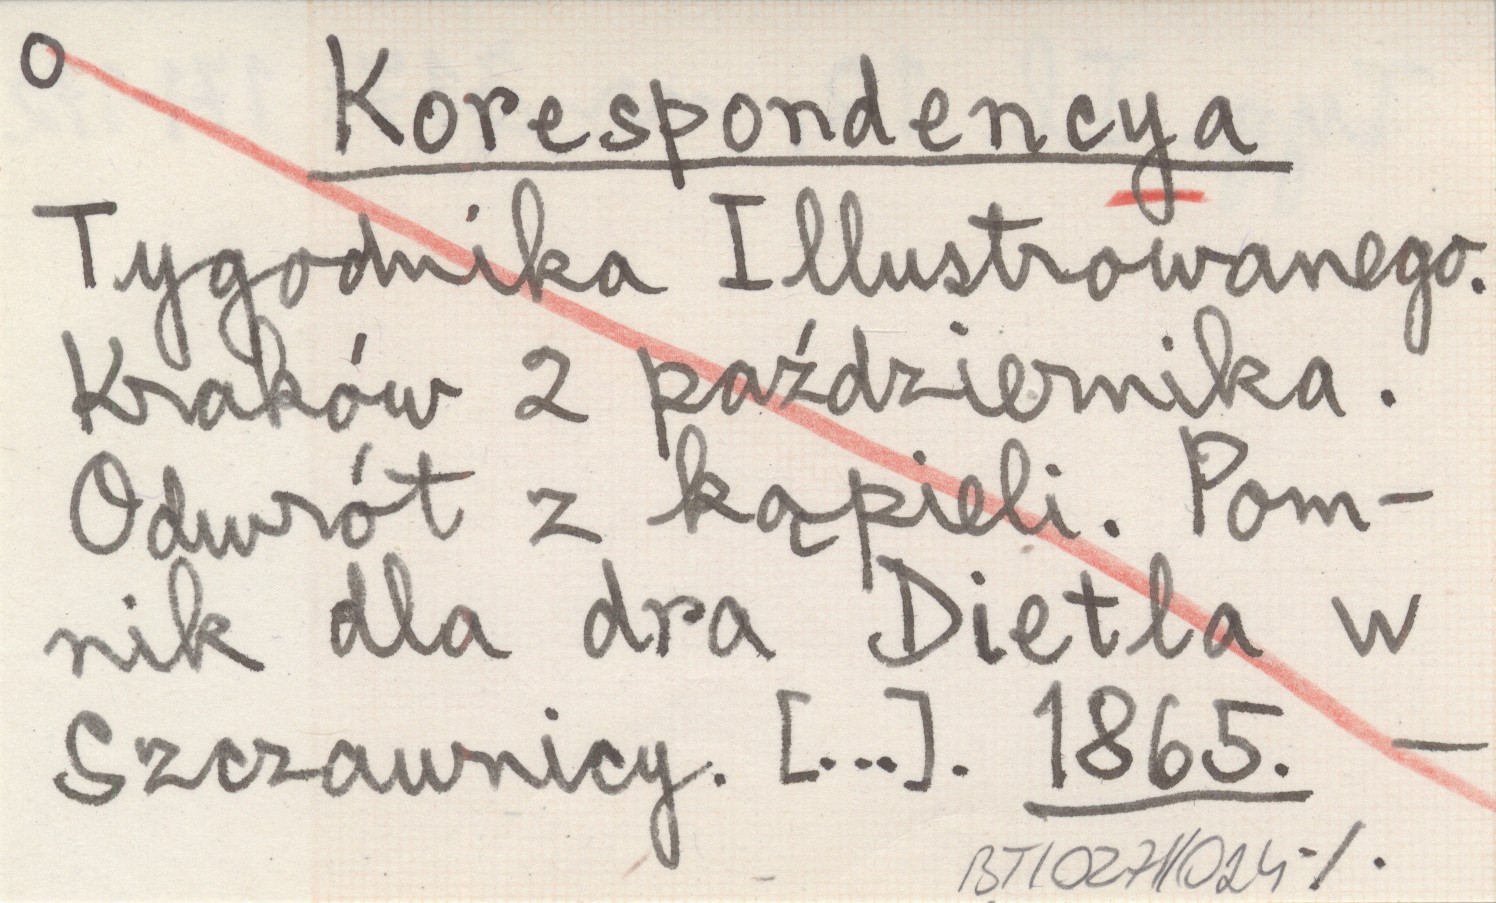 O Korespondencya
Tygodnika Illustrowanego.
Kraków 2 października.
Odwrót z kąpieli. Pom-
nik dla dra Dietla w
Szczawnicy. [...]. 1865. —